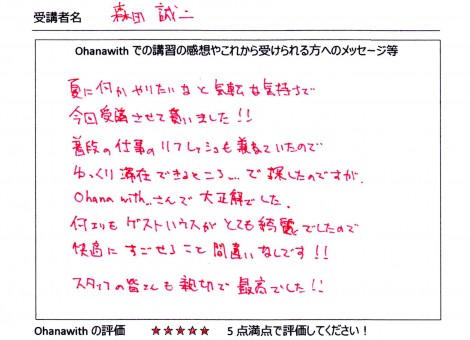 受講者名 森田 誠二
Ohanawith での講習の感想やこれから受けられる方へのメッセージ等
夏に何かやりたいなと気軽な気持ちで
今回受講させて貰いました!!
普段の仕事のリフレッシュも兼ねていたので
ゆっくり滞在できるところ...で探したのですが、
Ohana with...さんで大正解でした。
何よりもゲストハウスがとても綺麗でしたので
快適にすごせること間違いなしです!!
スタッフの皆さんも親切で最高でした!!
Ohanawith の評価 ★★★★★ 5点満点で評価してください!